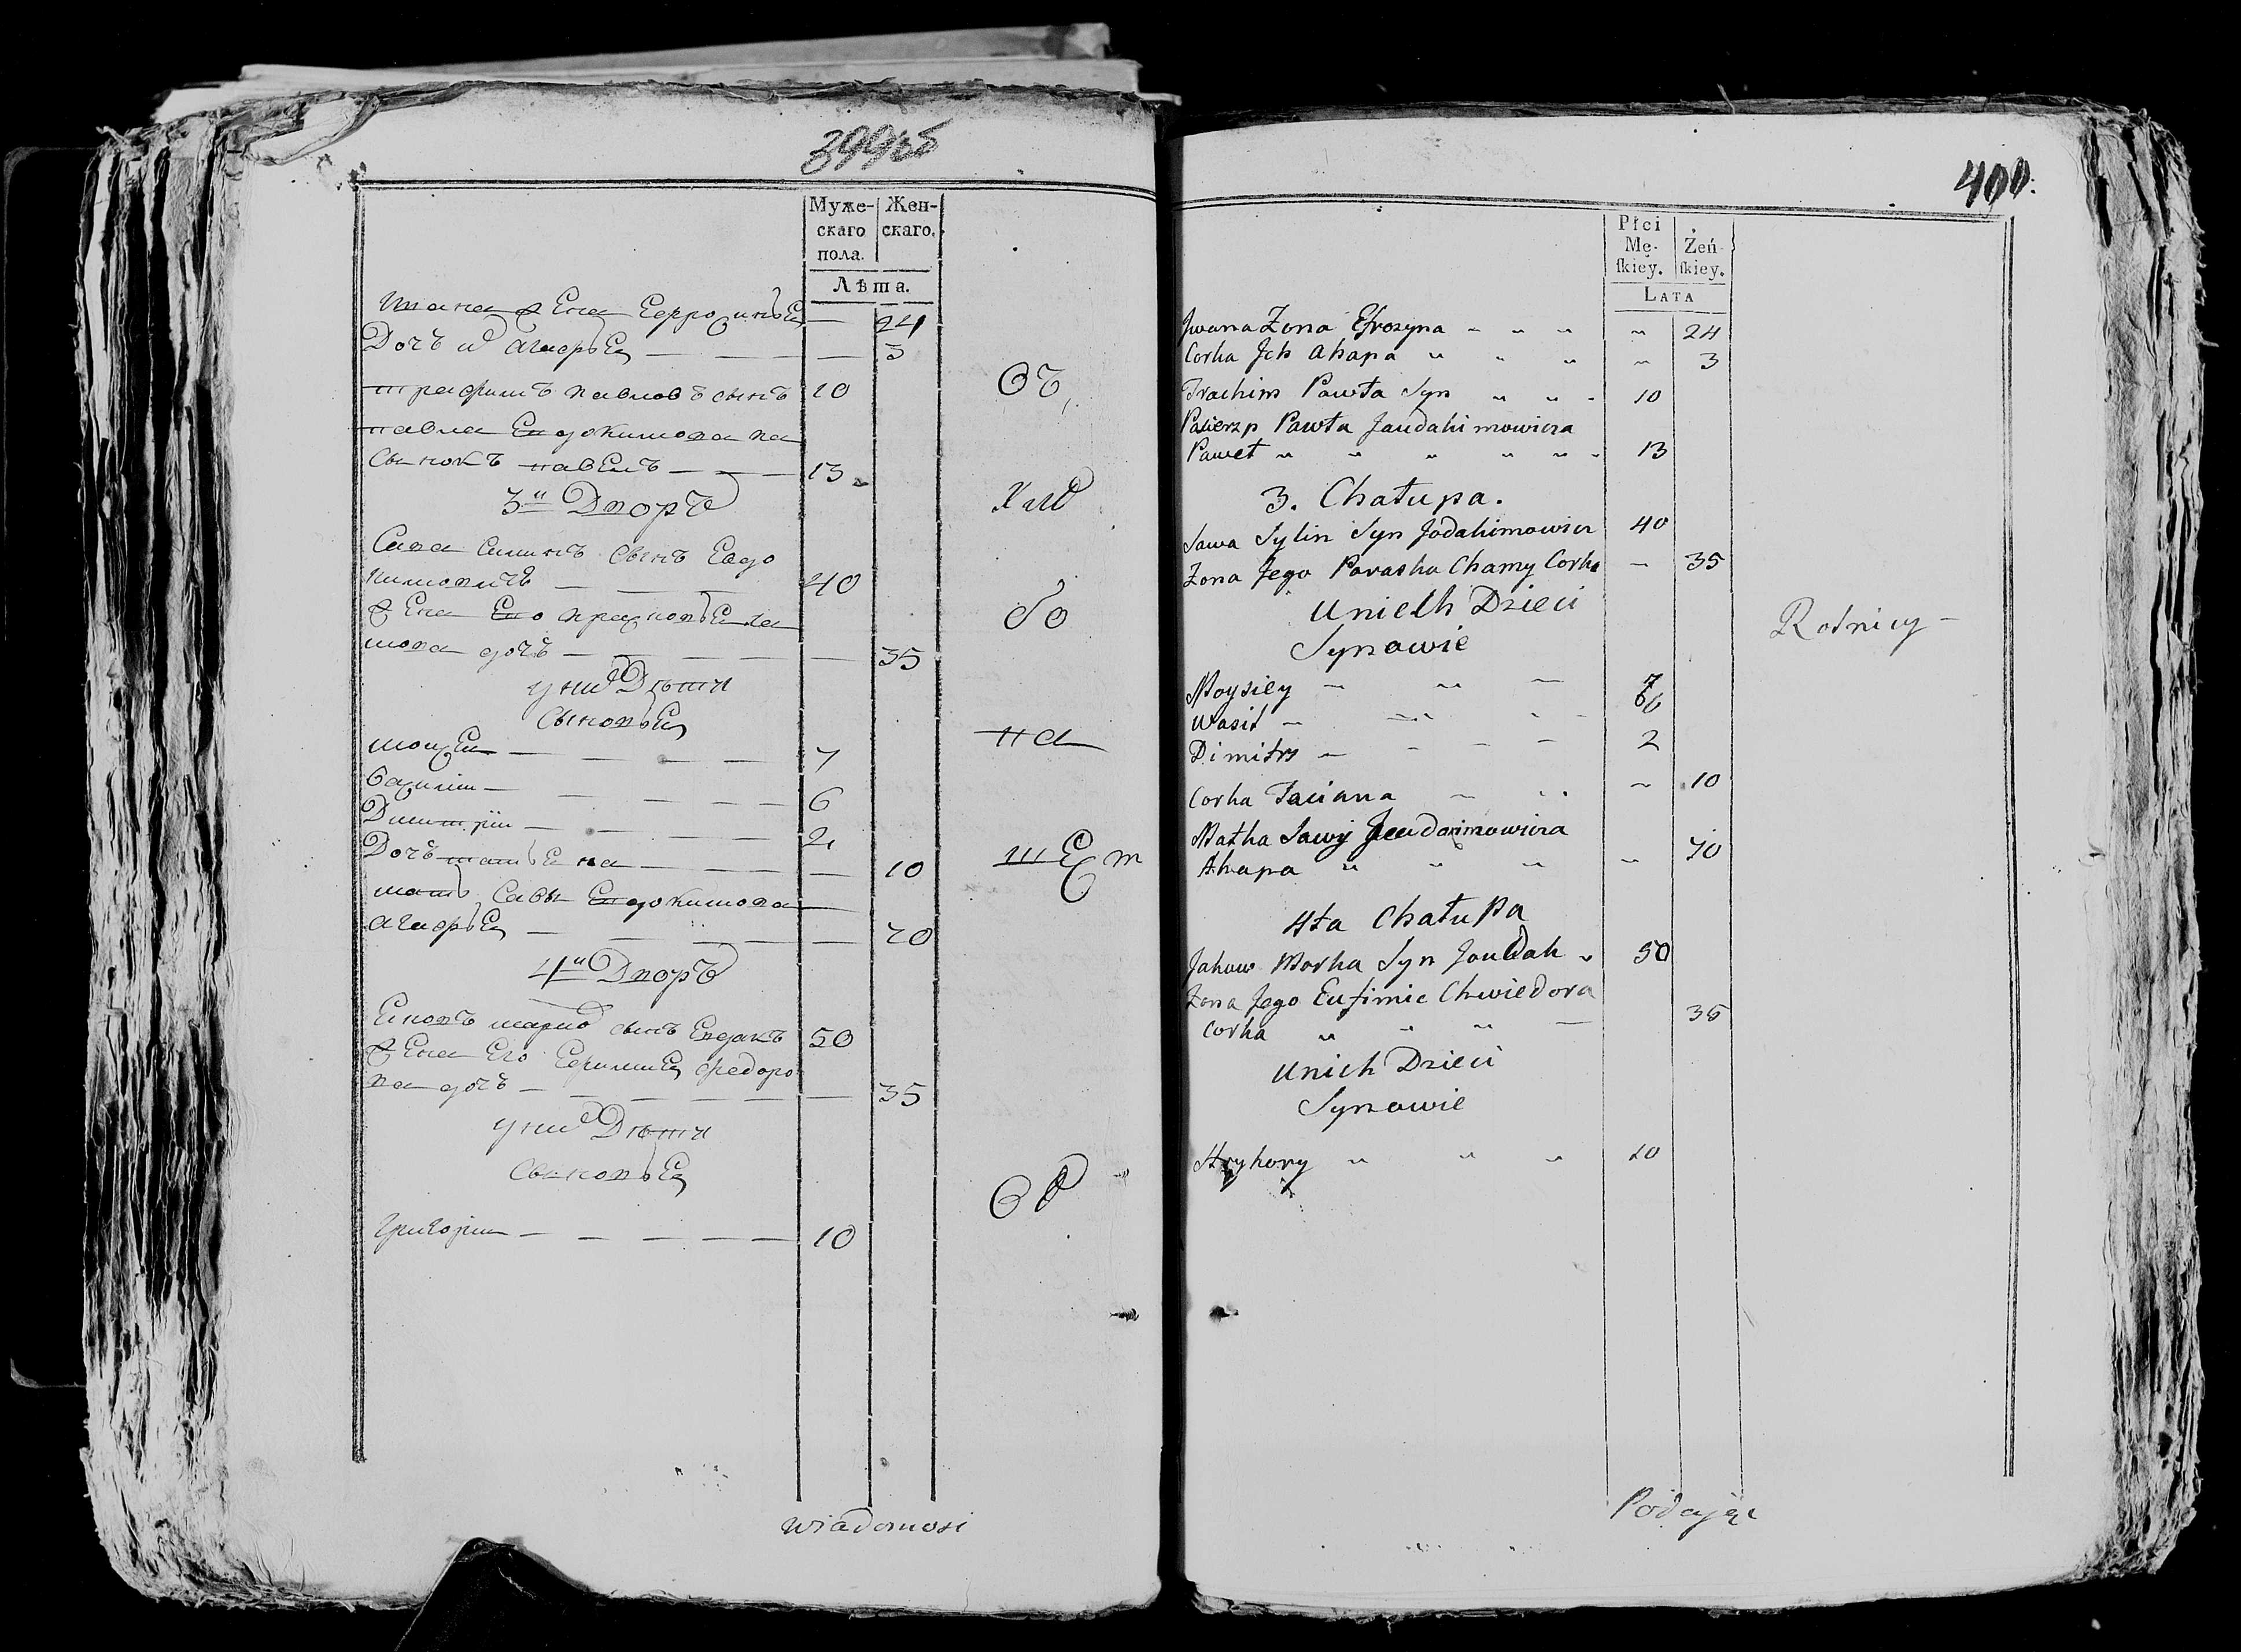 399об
Муже- Жен-
скаго скаго.
пола.
Лѣта.
Ивана жена Ефросинья — 24
Дочь их Агафья — — — 3
Трафимъ Павловъ сынъ 10
Павла Евдокимова па
сынокъ Павелъ — — 13
3й Дворъ
Сава Силинъ сынъ Евдо
кимовичъ — — — 40
Жена Его Прасковья Ха
мова дочь — — — — 35
у них Дѣти
Сыновья
Моисей — — — — 7
Василии — — — — — 6
Димитрии — — — — 2
Дочь Татьяна — — — — 10
Мать Савы Евдокимова —
Агафья — — — — — 70
4й Дворъ
Яковъ Марко сынъ Евдакъ 50
Жена Его Ефимия Федоро
ва дочь — — — — — — 35
у них Дѣти
Сыновья
Григории — — — — — 10
хлѣ
бо
па
ше
wiadomosi
400.
Płci
Mę- Żeń-
ſkiey. ſkiey.
LATA
Jwana Zona Efrozyna " " " " 24
Corka Jch Ahapa " " " " 3
Trachim Pawła Syn " " " 10
Pasierzp Pawła Jaudakimowicza
Paweł " " " " " " 13
3. Chałupa.
Sawa Sylin Syn Jodakimowicz 40
Zona Jego Paraska Chamy Corka — 35
Unich Dzieci
Synowie
Rolnicy —
Moysiey — " — 7
Wasil — " " — 6
Dimitry — — — — — 2
Corka Taciana — " " " 10
Matka Sawy Jaudakimowicza
Ahapa " " " " 70
4ta Chałupa
Jakow Marka Syn Jaudak " 50
Zona Jego Eufimie Chwiedora
Corka " " " — 35
Unich Dzieci
Synowie
Hryhory " " " 10
Podając